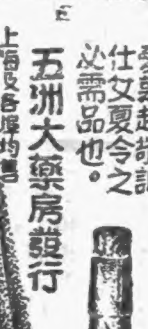 仕女夏令之
必需品也。
五洲大藥房發行
上海及各埠均售